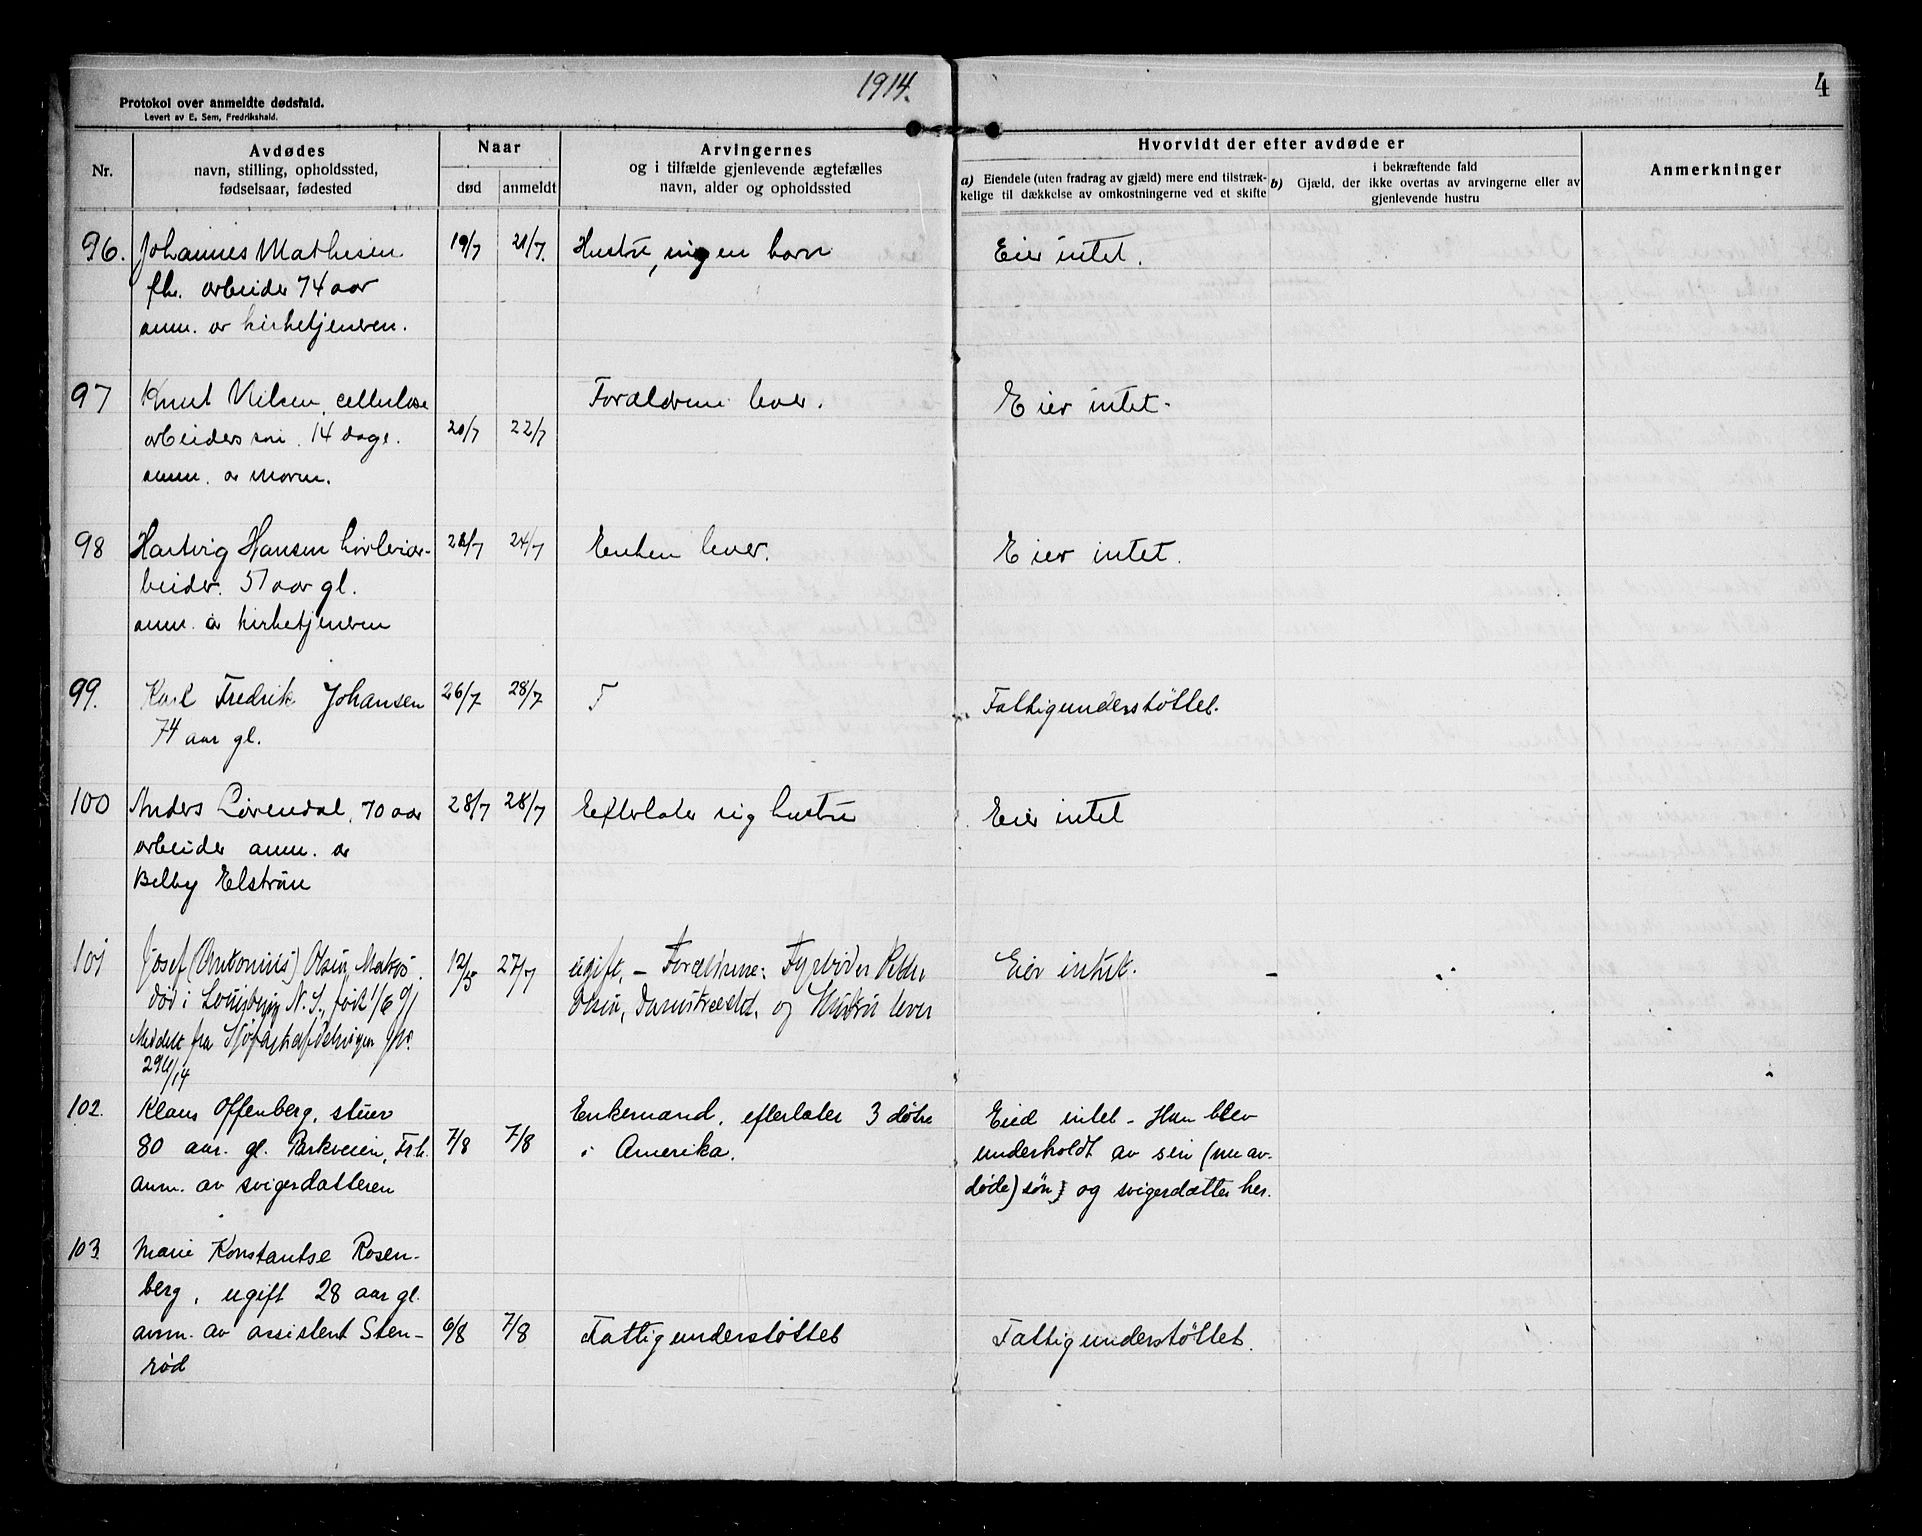 1914.
4
Protokol over anmeldte dødsfald.
Levert av E. Sem, Fredrikshald.
Nr.
Avdødes
navn, stilling, opholdssted,
fødselsaar, fødested
Naar
død
anmeldt
Arvingernes
og i tilfælde gjenlevende ægtefælles
navn, alder og opholdssted
Hvorvidt der efter avdøde er
a) Eiendele (uten fradrag av gjæld) mere end tilstræk-
kelige til dækkelse av omkostningerne ved et skifte
i bekræftende fald
b) Gjæld, der ikke overtas av arvingerne eller av
gjenlevende hustru
Anmerkninger
96. Johannes Mathisen 19/7 21/7. Hustru, ingen barn Eier intet.
fh. arbeider 74 aar
anm. av kirketjeneren.
97 Knut Nilsen, cellulose Forældrene lever. Eier intet.
arbeiders søn. 14 dage. 20/7 22/7
anm. av moren.
98 Hartvig Hansen høvleriar- 24/7 Enken lever. Eier intet.
beider. 57 aar gl.
anm. av kirketjeneren
99. Karl Fredrik Johansen 26/7 28/7 F Fattigunderstøttet.
74 aar gl.
100 Anders Lövendal, 70 aar 28/7 28/7 Efterlater sig hustru Eier intet
arbeider anm. av
Belby Elstrøm
101 Josef (Antonius) Olsen, Matros. 12/5 27/7 ugift. – Forældrene: Fyrbøder Peder Eier intet. –
død i Louisburg N.S., født 1/6 91 Olsen, Damstrædet, og Hustru lever
Meddelt fra Sjøfartsafdelingen
29/6/14
102. Klaus Offenberg, stuer Enkemand, efterlater 3 døtre Eied intet – Han blev
80 aar. gl. Parkveien, Fr.h. 7/8 7/8 i Amerika. underholdt av sin (nu av-
anm. av svigerdatteren døde) søn og svigerdatter her.
103. Marie Konstantse Rosen-
berg, ugift 28 aar gl.
anm. av assistent Sten- 6/8 7/8 Fattigunderstøttet Fattigunderstøttet.
rød